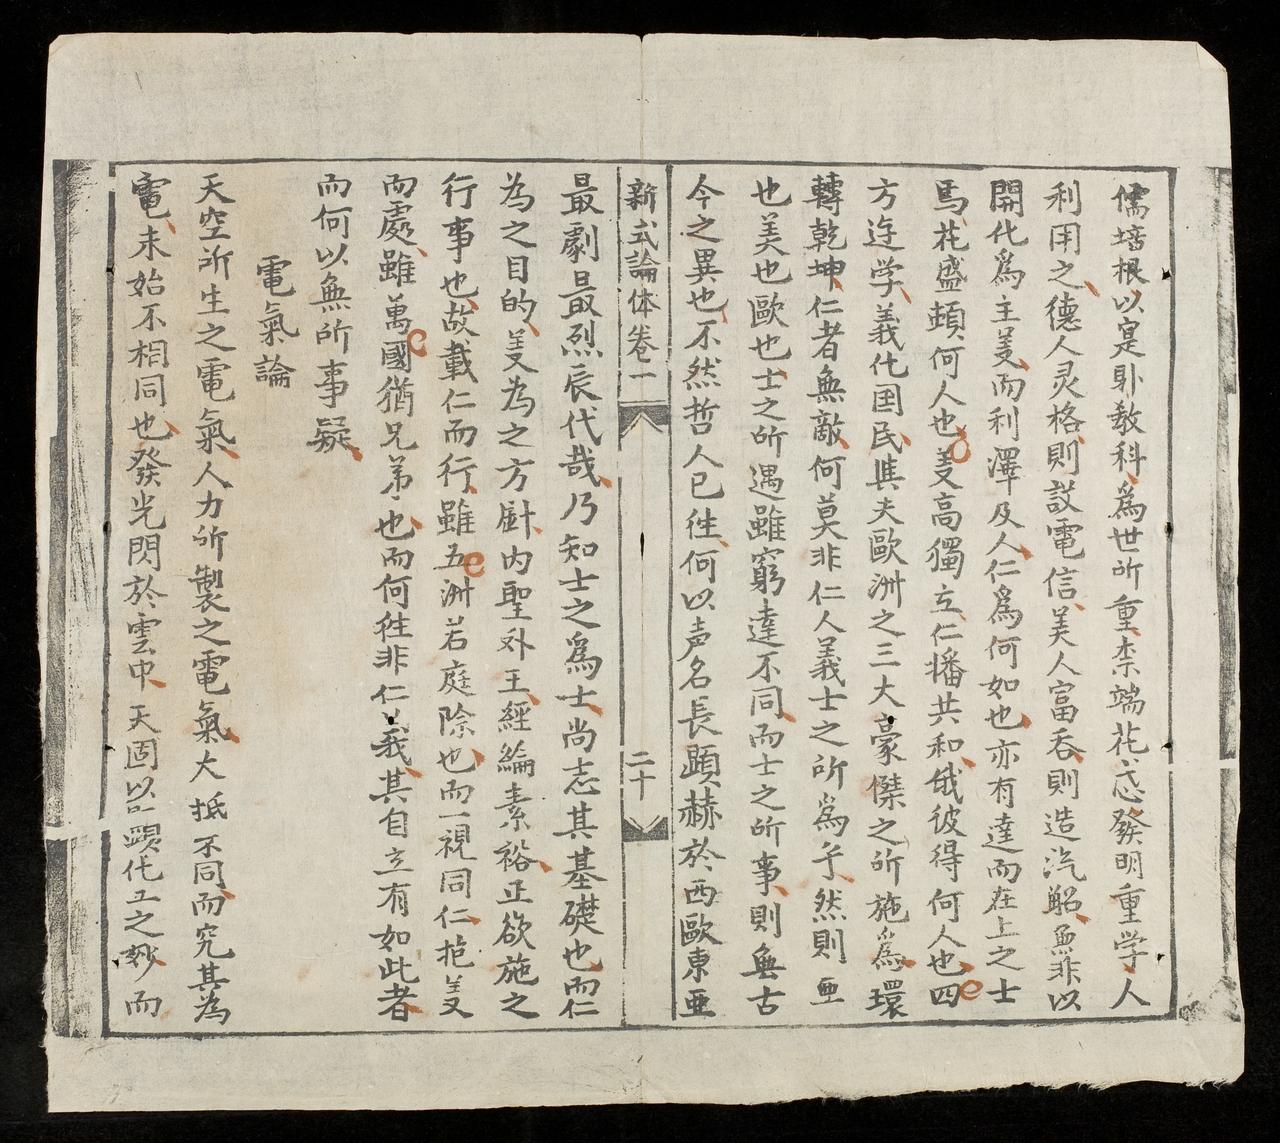 儒培根以寔卧敎科為世所重柰端花忒發明重学人
利用之德人灵格則設電信美人富吞則造汽船無非以
開化為主義而利澤及人仁為何如也亦有達而在上之士
馬花盛頓何人也義高獨立仁播共和俄彼得何人也四
方迬学義化国民與夫歐洲之三大豪傑之所施為環
轉乾坤仁者無敵何莫非仁人義士之所為乎然則亜
也美也歐也士之所遇雖窮達不同而士之所事則無古
今之異也不然哲人已徃何以声名長顕赫於西歐東亜
新式論体卷一 二十
最劇最烈辰代哉乃知士之為士尚志其基礎也而仁
為之目的義為之方針內聖外王經綸素裕正欲施之
行事也故載仁而行雖五洲若庭除也而一視同仁抱義
而處雖萬國猶兄弟也而何徃非仁義其自立有如此者
而何以無所事疑
電氣論
天空所生之電氣人力所製之電氣大抵不同而究其為
電未始不相同也發光閃於雲中天固以顕化工之妙而